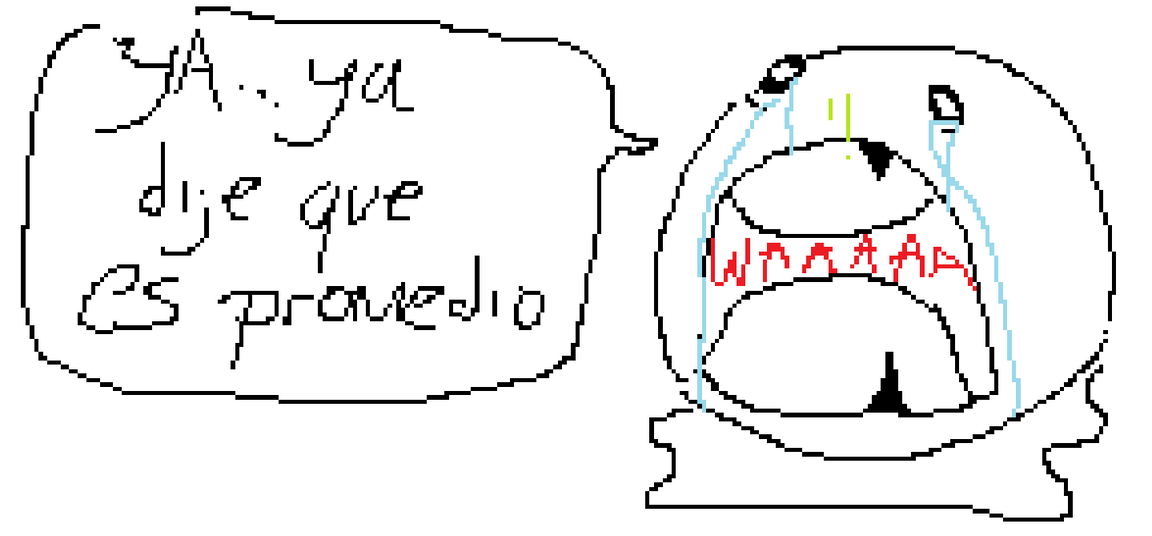 yA... ya
dije que
es promedio
WAAAAA